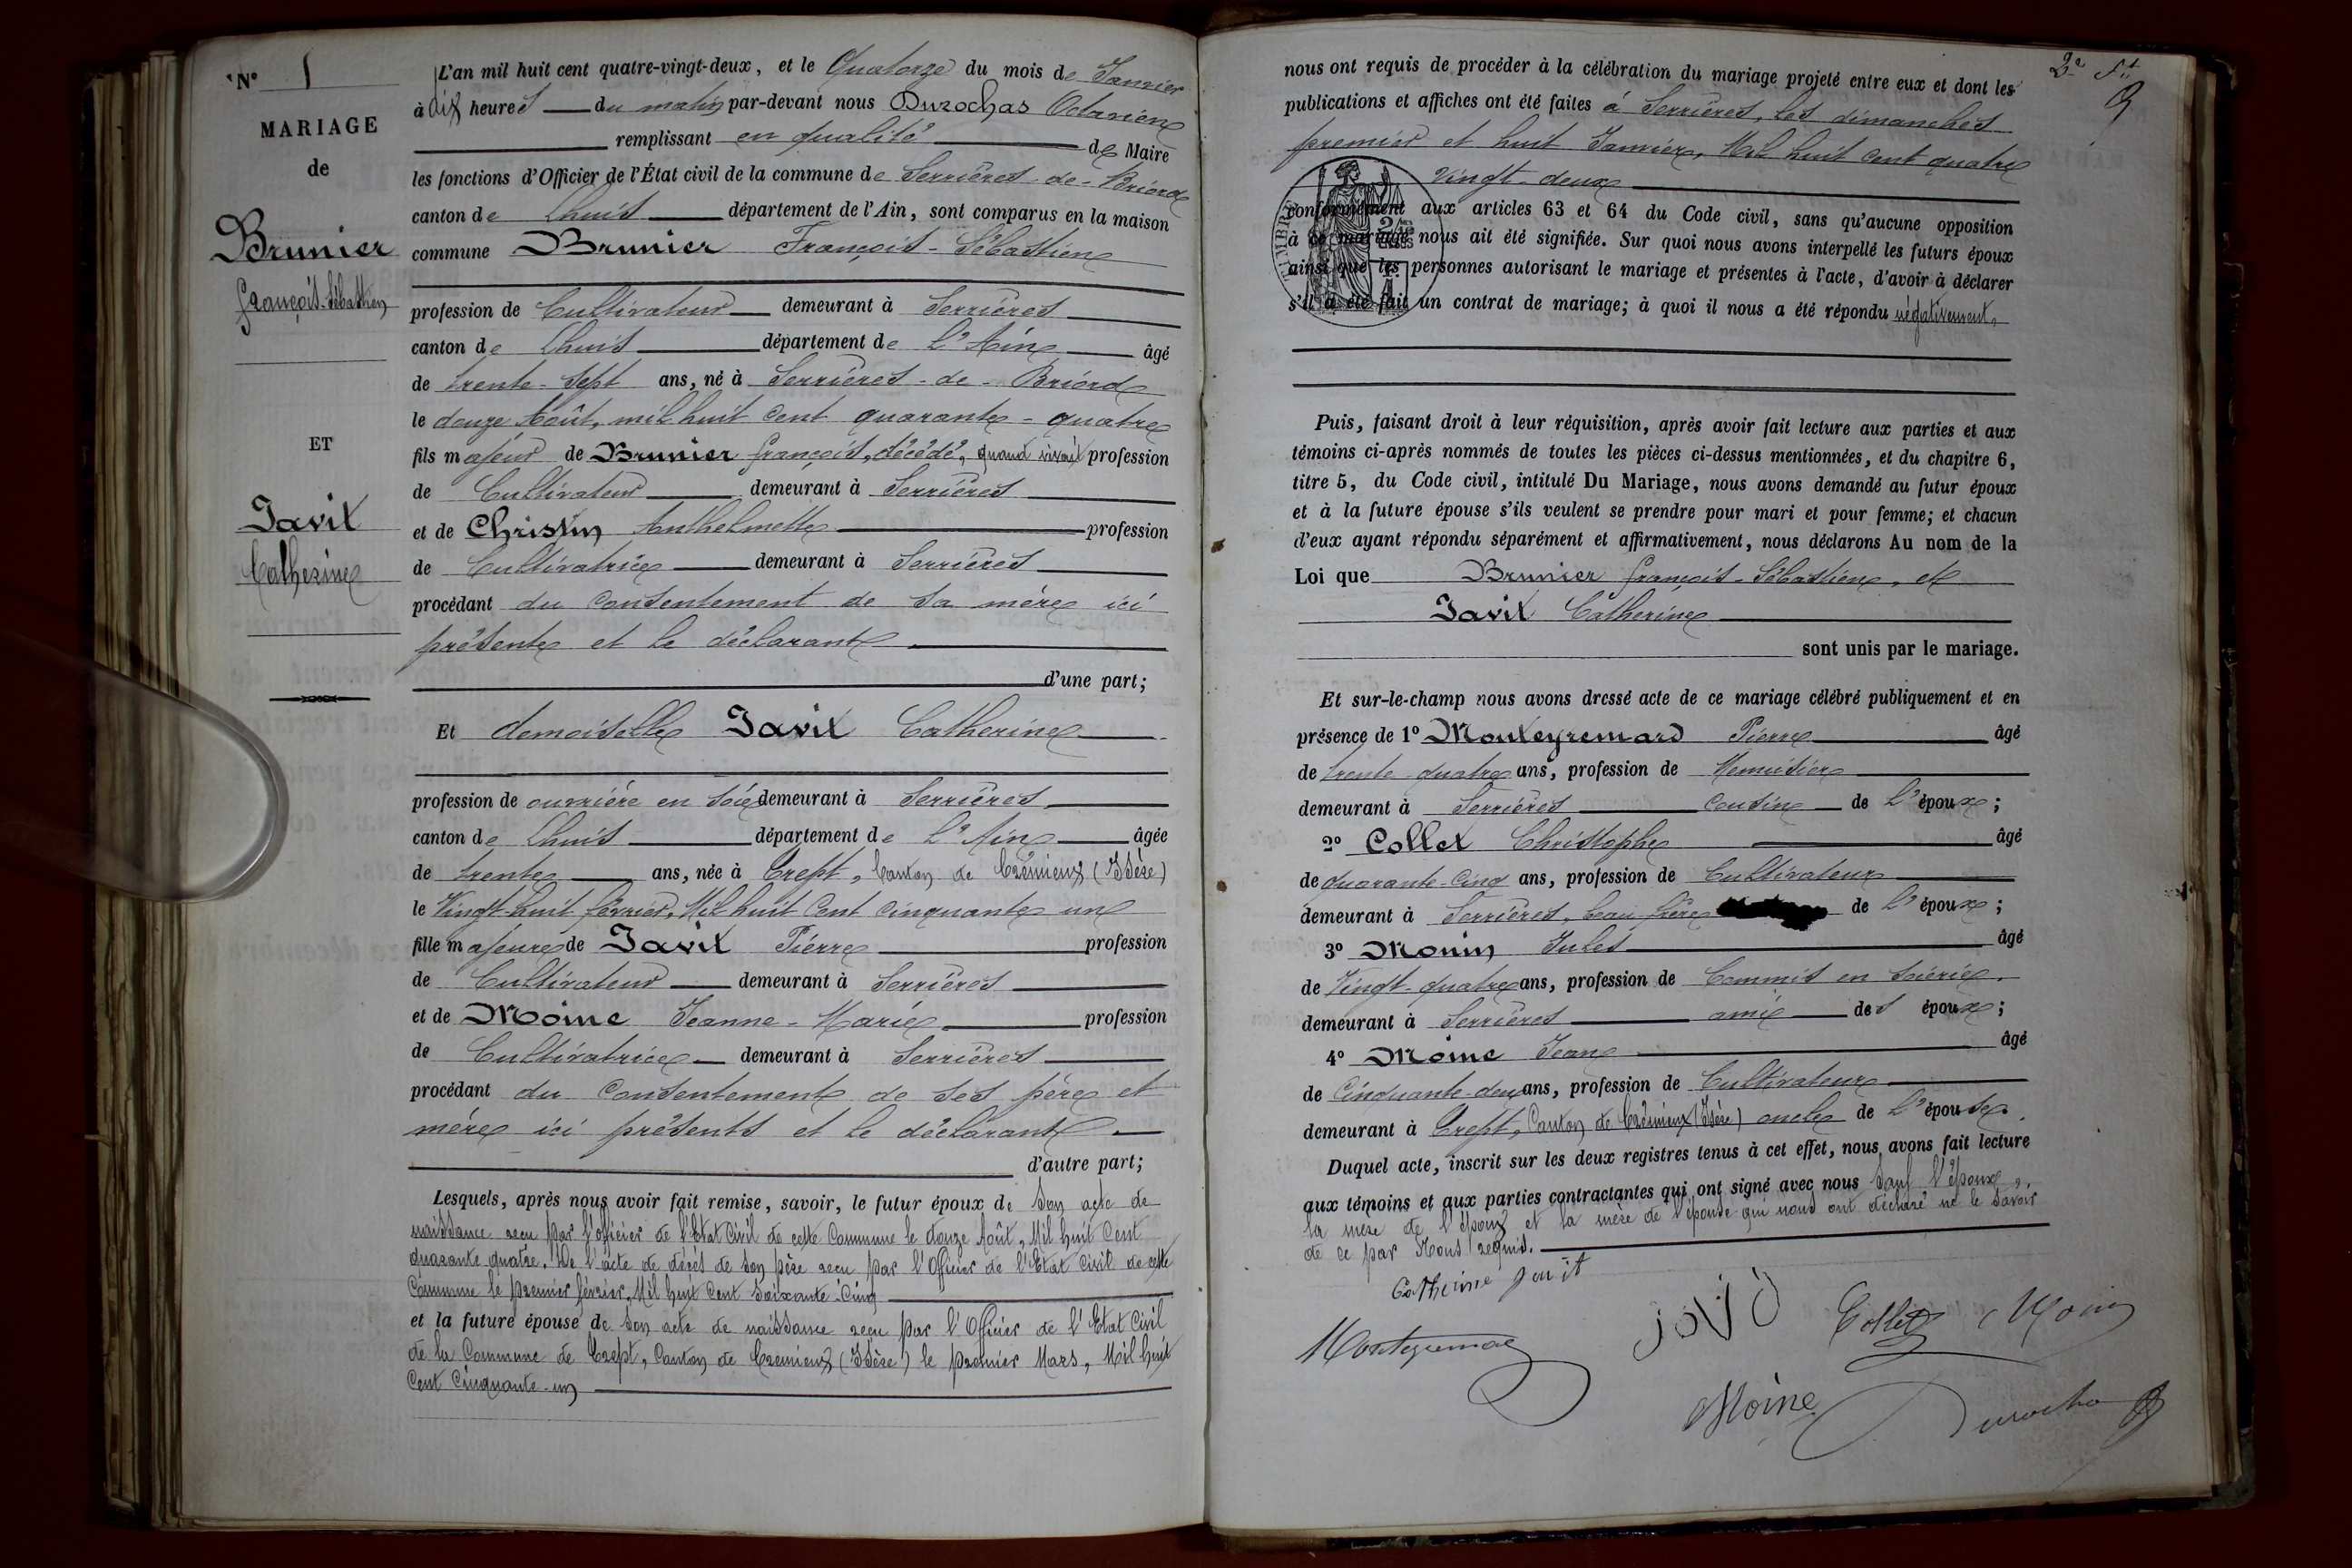 N° 1
MARIAGE
de
Brunier
François-Sébastien
ET
Javit
Catherine
L'an mil huit cent quatre-vingt-deux, et le Quatorze du mois de Janvier
à dix heures du matin par-devant nous Durochas Octavien
remplissant en qualité de Maire
les fonctions d'Officier de l'État civil de la commune de Serrières-de-Briord
canton de Lhuis département de l'Ain, sont comparus en la maison
commune Brunier François-Sébastien
profession de Cultivateur demeurant à Serrières
canton de Lhuis département de L'Ain âgé
de trente-sept ans, né à Serrières-de-Briord
le douze Août, mil huit cent quarante-quatre
fils majeur de Brunier François, décédé, quand vivait profession
de Cultivateur demeurant à Serrières
et de Christin Anthelmette profession
de Cultivatrice demeurant à Serrières
procédant du consentement de sa mère ici
présente et le déclarant
d'une part;
Et demoiselle Javit Catherine
profession de ouvrière en soie demeurant à Serrières
canton de Lhuis département de L'Ain âgée
de trente ans, née à Crept, Canton de Crémieux (Isère)
le Vingt-huit février, Mil huit cent cinquante un
fille majeure de Javit Pierre profession
de Cultivateur demeurant à Serrières
et de Moine Jeanne-Marie profession
de Cultivatrice demeurant à Serrières
procédant du consentement de ses père et
mère ici présents et le déclarant
d'autre part;
Lesquels, après nous avoir fait remise, savoir, le futur époux de Son acte de
naissance reçu par l'officier de l'Etat Civil de cette Commune le douze Août, Mil huit Cent
quarante quatre. De l'acte de décès de son père reçu par l'Officier de l'Etat Civil de cette
Commune le premier février, Mil huit Cent Soixante-Cinq
et la future épouse de Son acte de naissance reçu par l'Officier de l'Etat Civil
de la Commune de Crept, Canton de Cremieux (Isère) le premier Mars, Mil huit
Cent Cinquante-un
2e Ft
9
nous ont requis de procéder à la célébration du mariage projeté entre eux et dont les
publications et affiches ont été faites à Serrières, les dimanches
premier et huit Janvier, Mil huit cent quatre
vingt-deux
conformément aux articles 63 et 64 du Code civil, sans qu'aucune opposition
à ce mariage nous ait été signifiée. Sur quoi nous avons interpellé les futurs époux
ainsi que les personnes autorisant le mariage et présentes à l'acte, d'avoir à déclarer
s'il a été fait un contrat de mariage; à quoi il nous a été répondu négativement.
TIMBRE
Puis, faisant droit à leur réquisition, après avoir fait lecture aux parties et aux
témoins ci-après nommés de toutes les pièces ci-dessus mentionnées, et du chapitre 6,
titre 5, du Code civil, intitulé Du Mariage, nous avons demandé au futur époux
et à la future épouse s'ils veulent se prendre pour mari et pour femme; et chacun
d'eux ayant répondu séparément et affirmativement, nous déclarons Au nom de la
Loi que Brunier François-Sébastien, et
Javit Catherine
sont unis par le mariage.
Et sur-le-champ nous avons dressé acte de ce mariage célébré publiquement et en
présence de 1° Monteyremard Pierre âgé
de trente-quatre ans, profession de Menuisier
demeurant à Serrières cousin de L'époux;
2° Collet Christophe âgé
de quarante-cinq ans, profession de Cultivateur
demeurant à Serrières, beau frère de L'époux;
3° Monin Jules âgé
de Vingt-quatre ans, profession de Commis en soierie,
demeurant à Serrières ami des époux;
4° Moine Jean âgé
de Cinquante-deux ans, profession de Cultivateur
demeurant à Crept, Canton de Crémieux (Isère) oncle de L'épouse.
Duquel acte, inscrit sur les deux registres tenus à cet effet, nous avons fait lecture
aux témoins et aux parties contractantes qui ont signé avec nous Sauf l'époux,
la mère de l'époux et la mère de l'épouse qui nous ont déclaré ne le savoir
de ce par Nous requis.
Catherine Javit
Monteyremard
Collet
Monin
Moine